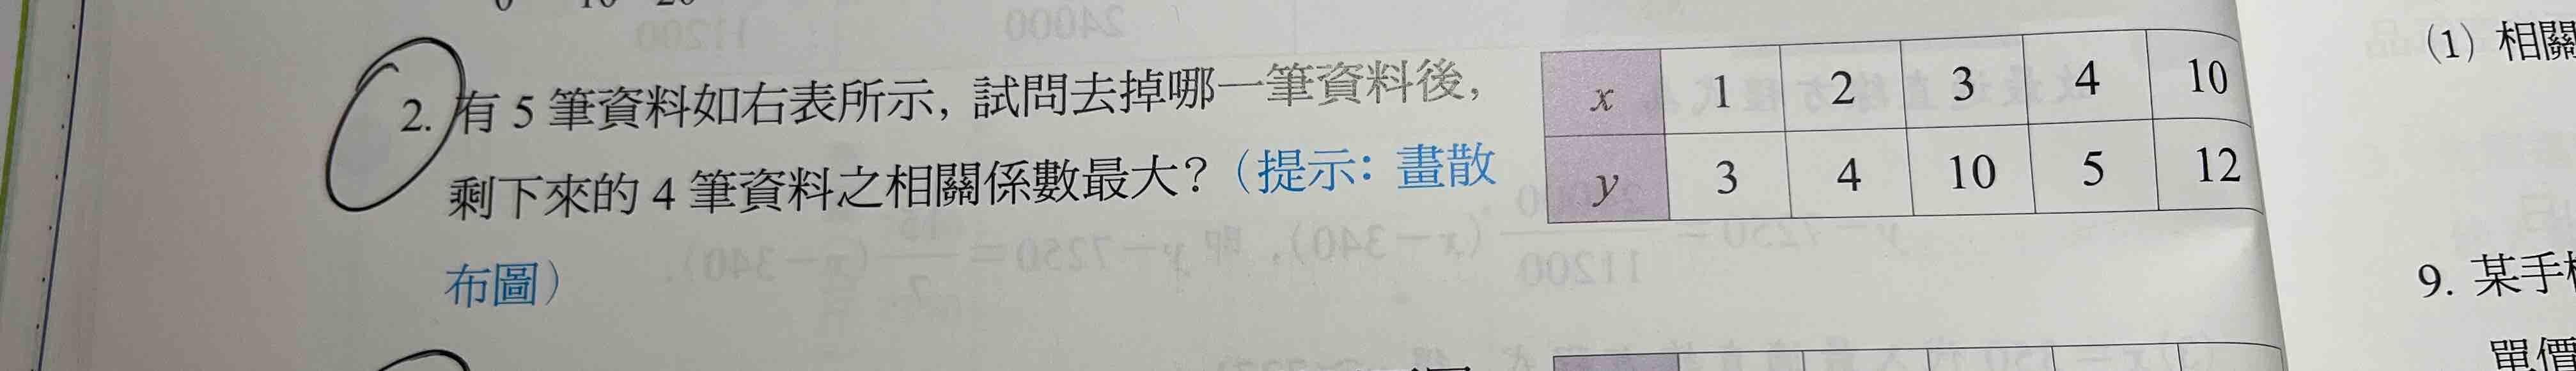 2. 有 5 筆資料如右表所示, 試問去掉哪一筆資料後,
剩下來的 4 筆資料之相關係數最大? (提示: 畫散
布圖)
x 1 2 3 4 10
y 3 4 10 5 12
(1) 相關
9. 某手
單價